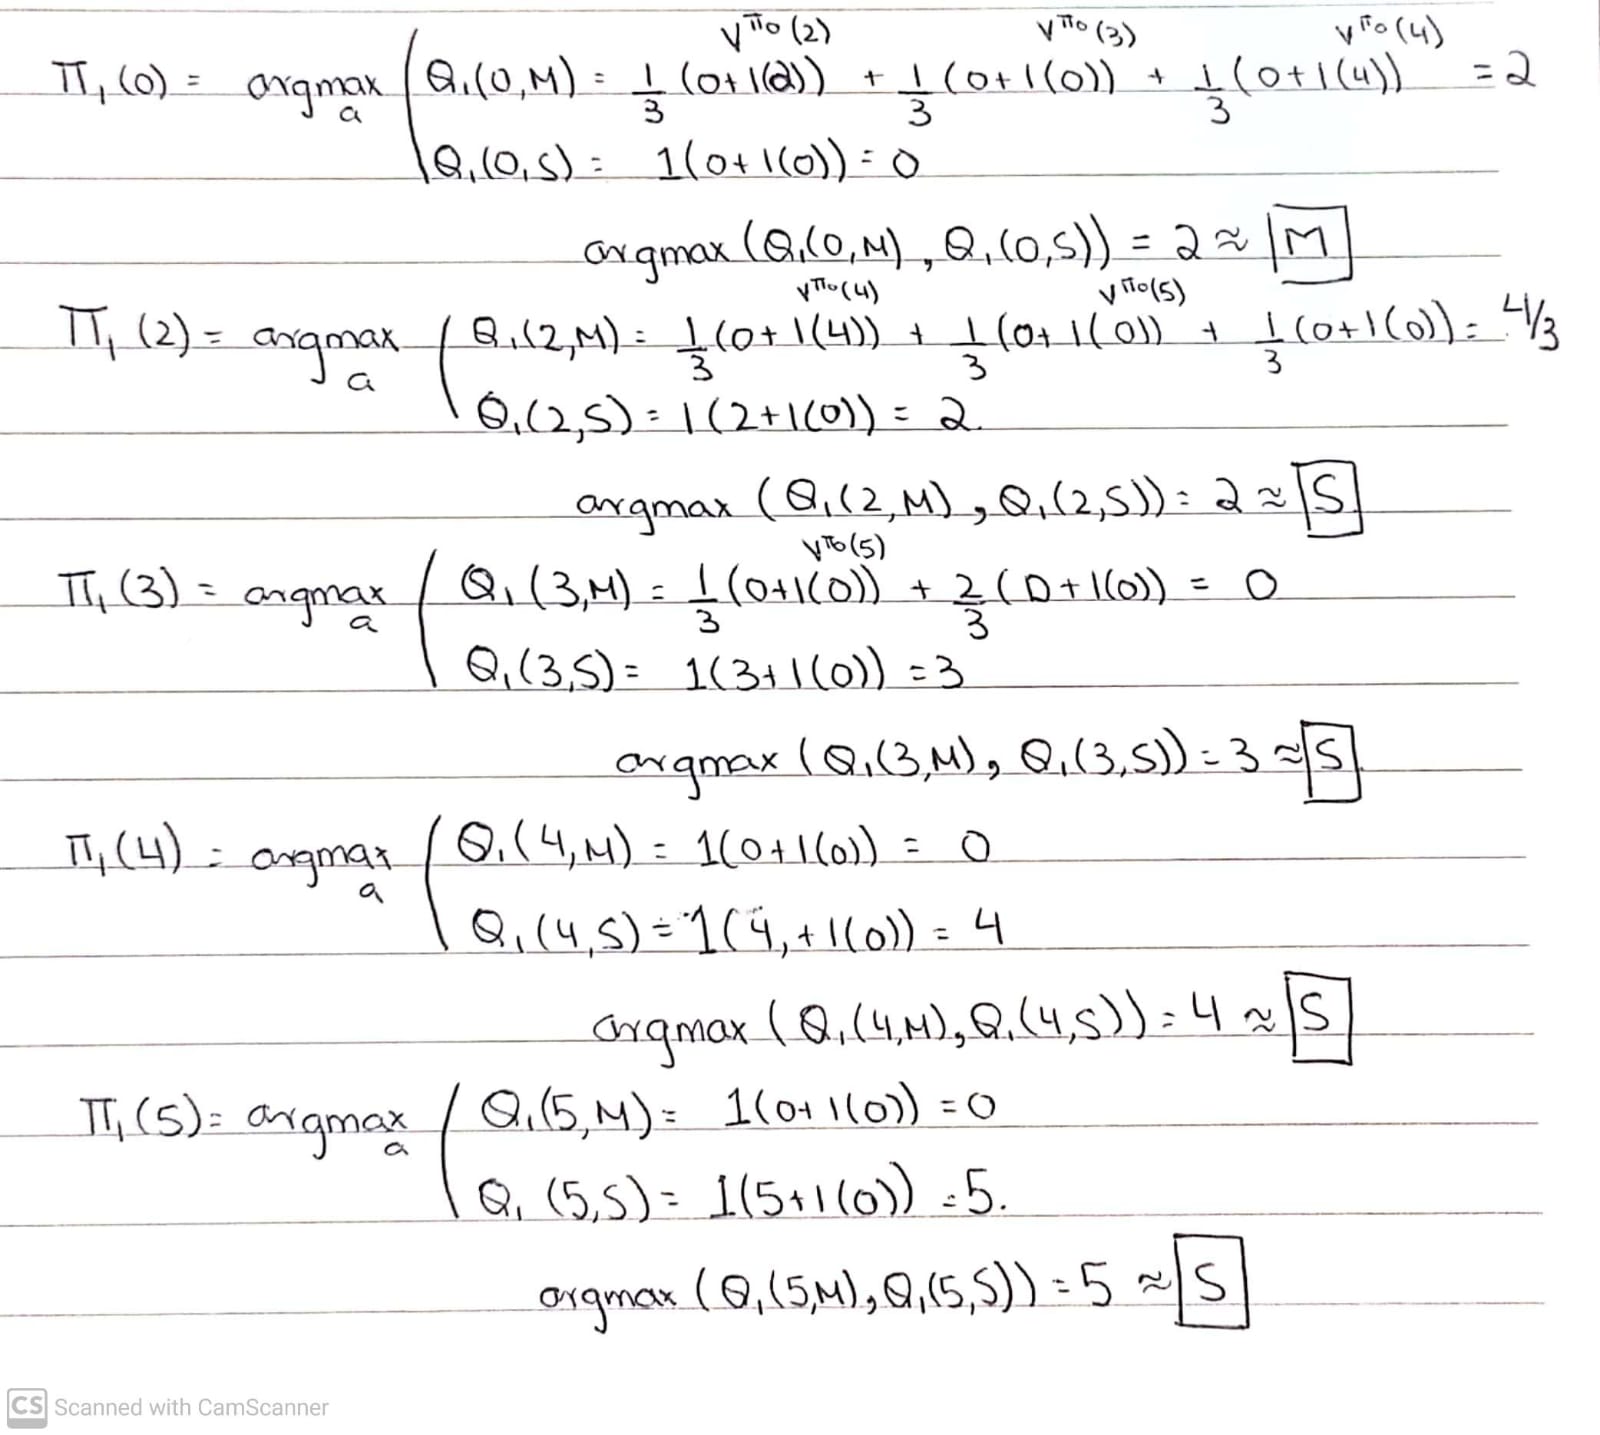 V^π₀(2) V^π₀(3) V^π₀(4)
π₁(0) = argmax_a ( Q₁(0,M) = 1/3 (0+1(2)) + 1/3 (0+1(0)) + 1/3 (0+1(4)) = 2
Q₁(0,S) = 1(0+1(0)) = 0
argmax (Q₁(0,M), Q₁(0,S)) = 2 ≈ M
V^π₀(4) V^π₀(5)
π₁(2) = argmax_a ( Q₁(2,M) = 1/3 (0+1(4)) + 1/3 (0+1(0)) + 1/3 (0+1(0)) = 4/3
Q₁(2,S) = 1(2+1(0)) = 2.
argmax (Q₁(2,M), Q₁(2,S)) = 2 ≈ S
V^π₀(5)
π₁(3) = argmax_a ( Q₁(3,M) = 1/3 (0+1(0)) + 2/3 (0+1(0)) = 0
Q₁(3,S) = 1(3+1(0)) = 3
argmax (Q₁(3,M), Q₁(3,S)) = 3 ≈ S
π₁(4) = argmax_a ( Q₁(4,M) = 1(0+1(0)) = 0
Q₁(4,S) = 1(4,+1(0)) = 4
argmax (Q₁(4,M), Q₁(4,S)) = 4 ≈ S
π₁(5) = argmax_a ( Q₁(5,M) = 1(0+1(0)) = 0
Q₁(5,S) = 1(5+1(0)) = 5.
argmax (Q₁(5,M), Q₁(5,S)) = 5 ≈ S
CS Scanned with CamScanner